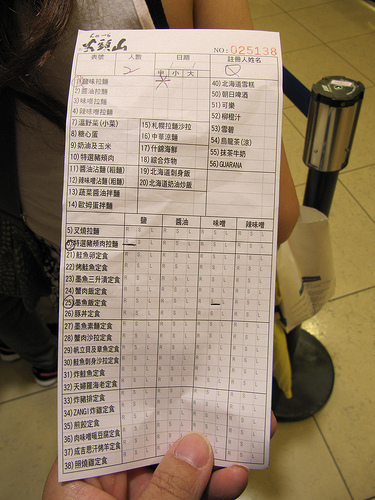 NO: 025138
表號 人數 日期 註冊人姓名
2
中 小 大
1) 鹽味拉麵
2) 醬油拉麵
3) 味噌拉麵
4) 辣味噌拉麵
7) 溫野菜(小菜)
8) 糖心蛋
9) 奶油及玉米
10) 特選豬頰肉
11) 醬油沾麵(粗麵)
12) 辣味噌沾麵(粗麵)
13) 蔬菜醬油拌麵
14) 歐姆蛋拌麵
15) 札幌拉麵沙拉
16) 中華涼麵
17) 什錦海鮮
18) 綜合炸物
19) 北海道刺身飯
20) 北海道奶油炒飯
40) 北海道雪糕
50) 朝日啤酒
51) 可樂
52) 柳橙汁
53) 雪碧
54) 烏龍茶(涼)
55) 抹茶牛奶
56) GUARANA
鹽 醬油 味噌 辣味噌
5) 叉燒拉麵
6) 特選豬頰肉拉麵
21) 鮭魚卵定食
22) 烤鮭魚定食
23) 墨魚三升漬定食
24) 蟹肉飯定食
25) 墨魚飯定食
26) 豚丼定食
27) 墨魚素麵定食
28) 蟹肉沙拉定食
29) 帆立貝及章魚定食
30) 鮭魚刺身沙拉定食
31) 炸鮭魚定食
32) 天婦羅海老定食
33) 炸豬排定食
34) ZANGI炸雞定食
35) 煎餃定食
36) 肉味噌暖豆腐定食
37) 成吉思汗烤羊定食
38) 照燒雞定食